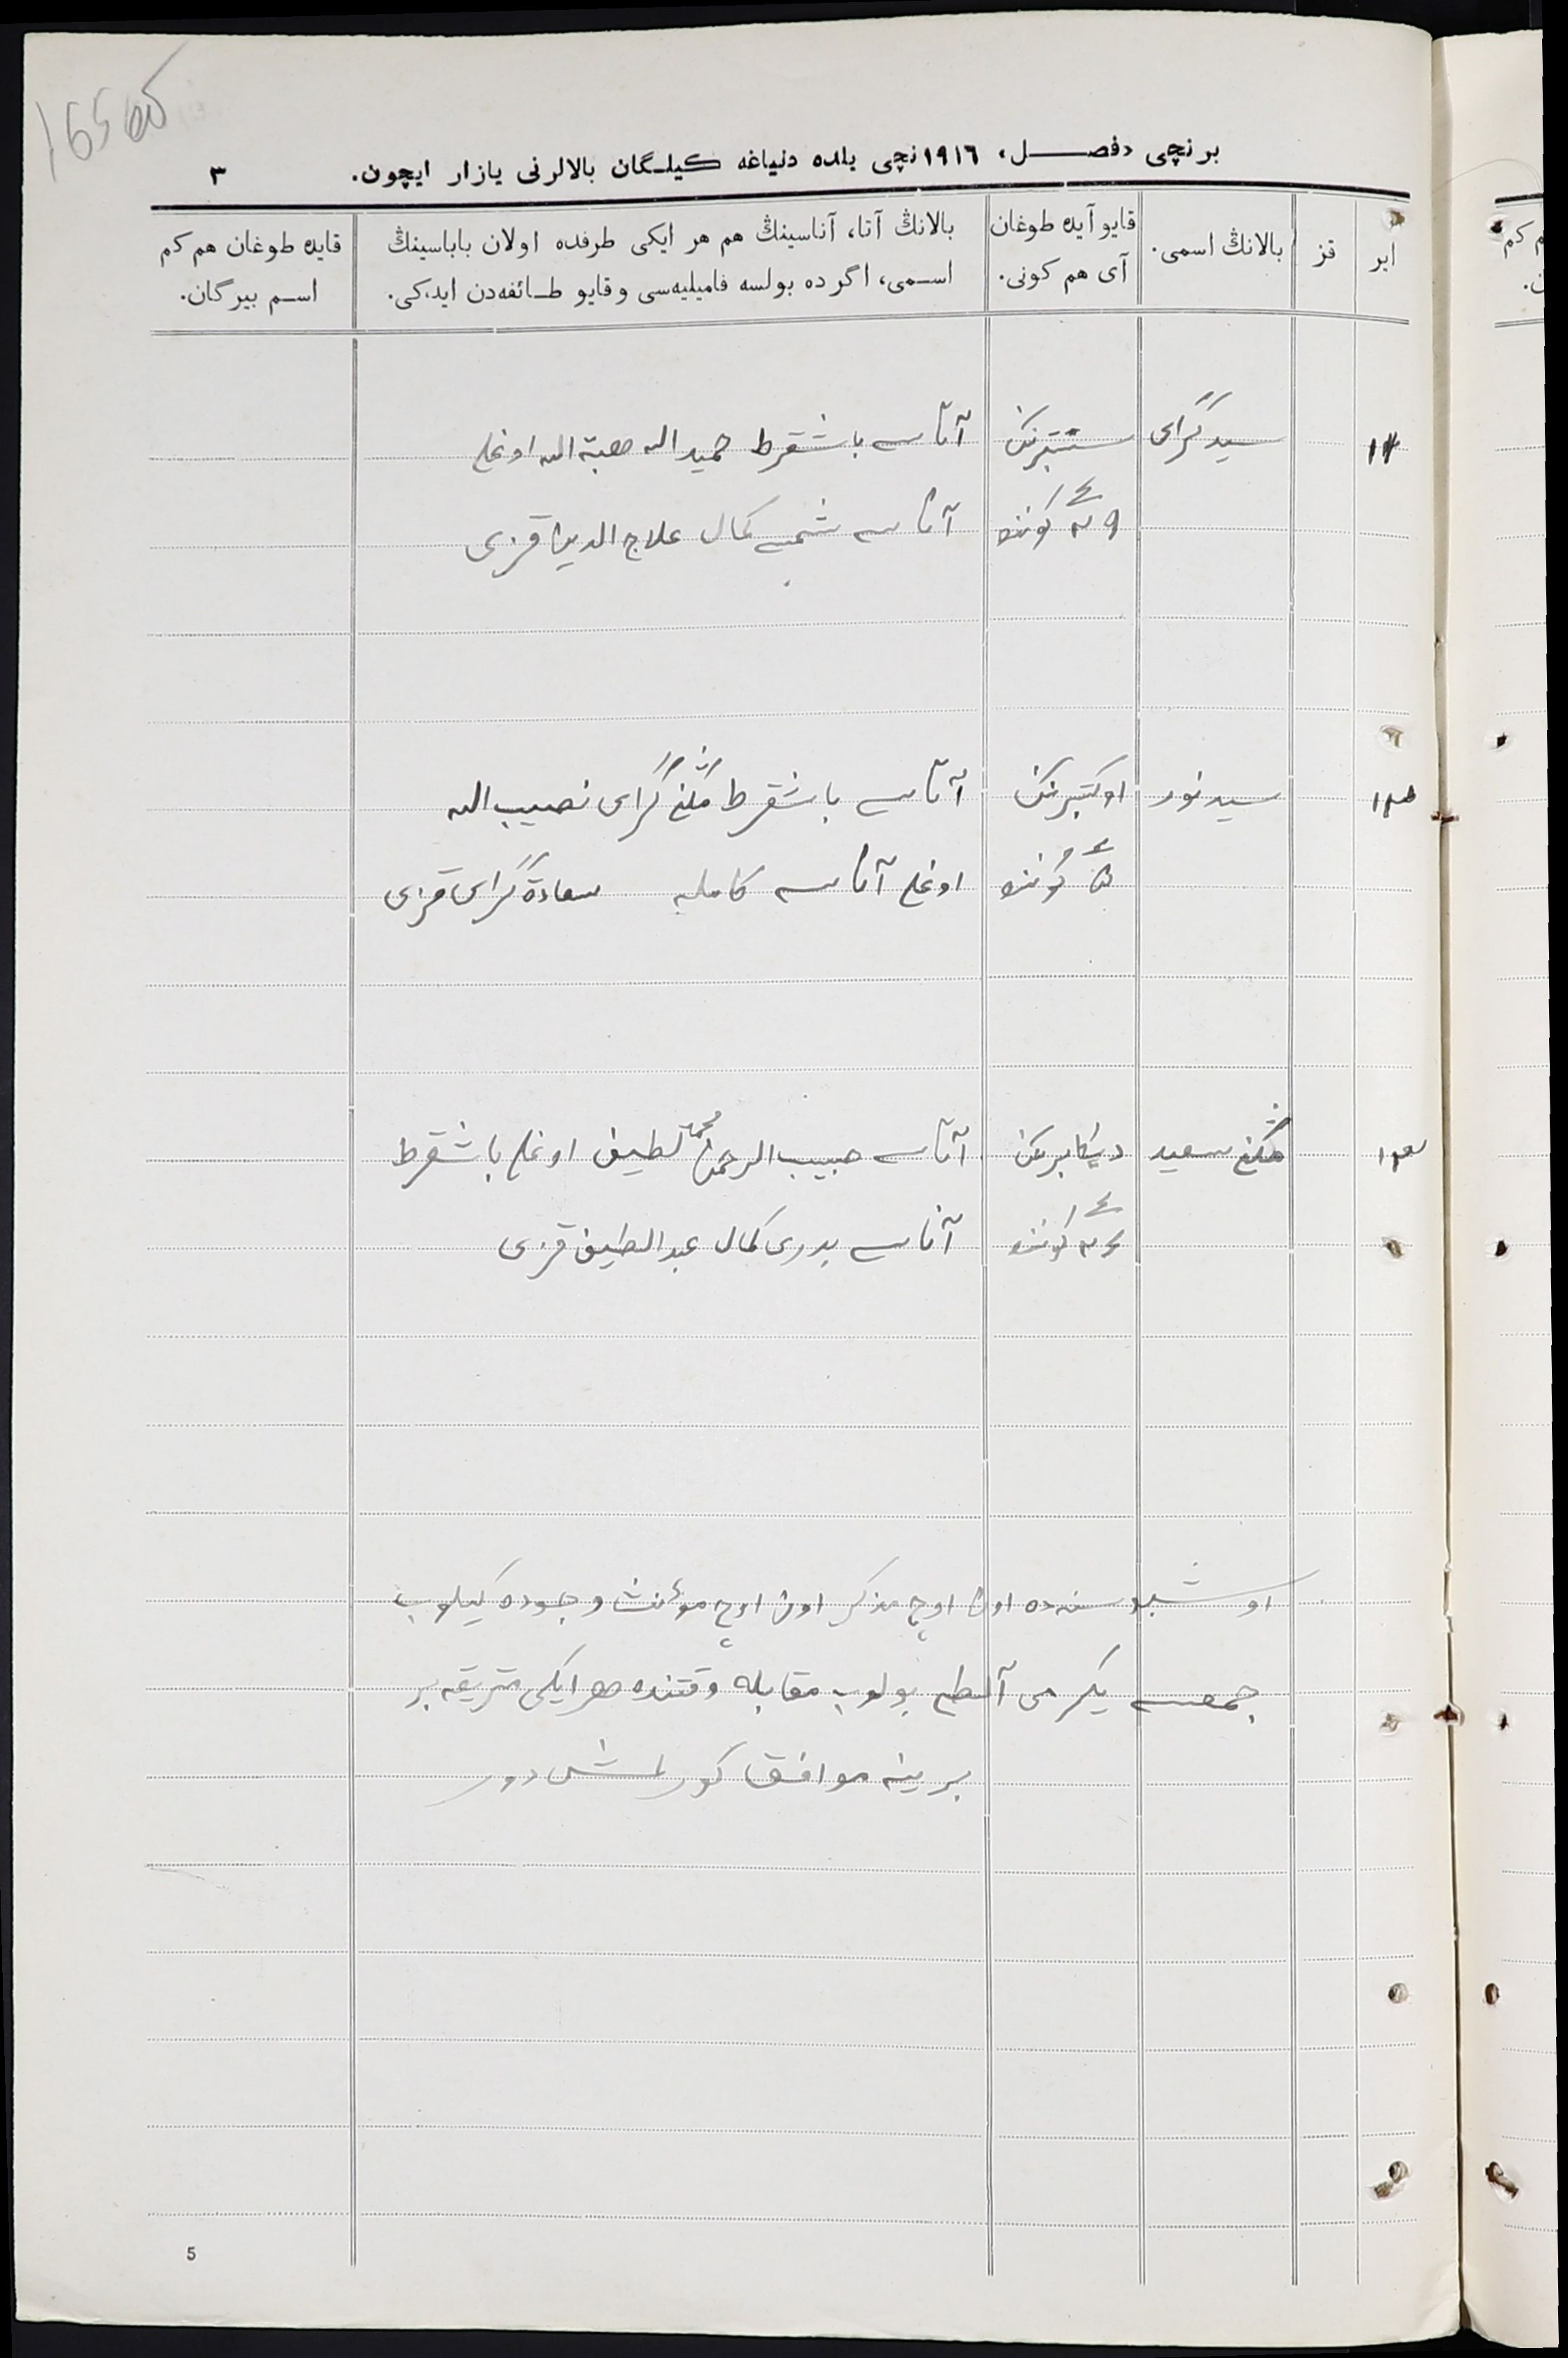 برنچی «فصل» ١٩١٦نچی یلده دنیاغه کیلگان بالالرنی یازار ایچون.
٣
ایر
قز
بالانڭ اسمی.
قایو آیده طوغان آی هم کونی.
بالانڭ آتا، آناسینڭ هم هر ایکی طرفده اولان باباسینڭ
اسمی، اگرده بولسه فامیلیه‌سی وقایو طائفه‌دن ایدکی.
قایده طوغان هم کم
اسم بیرگان.
سید گرای سنتبرنک آتاسی باشقرط حمید الله هبة الله اوغلی
کوننده آناسی شمسی کمال علاج الدین قزی
سید نور اوکتبرنک آتاسی باشقرط گرای نصیب الله
کوننده اوغلی آناسی کاملیه سعادة گرای قزی
سعید دیکابرنک آتاسی حبیب الرحمن محمد لطیف اوغلی باشقرط
کوننده آناسی بدری کمال عبد الطیف قزی
اوشبو سنه‌ده اون اوچ مذکر اون اوچ مؤنث وجوده کیلوب
جمعسی یکرمی آلطی بولوب مقابله وقتنده هر ایکی بر
برینه موافق
5